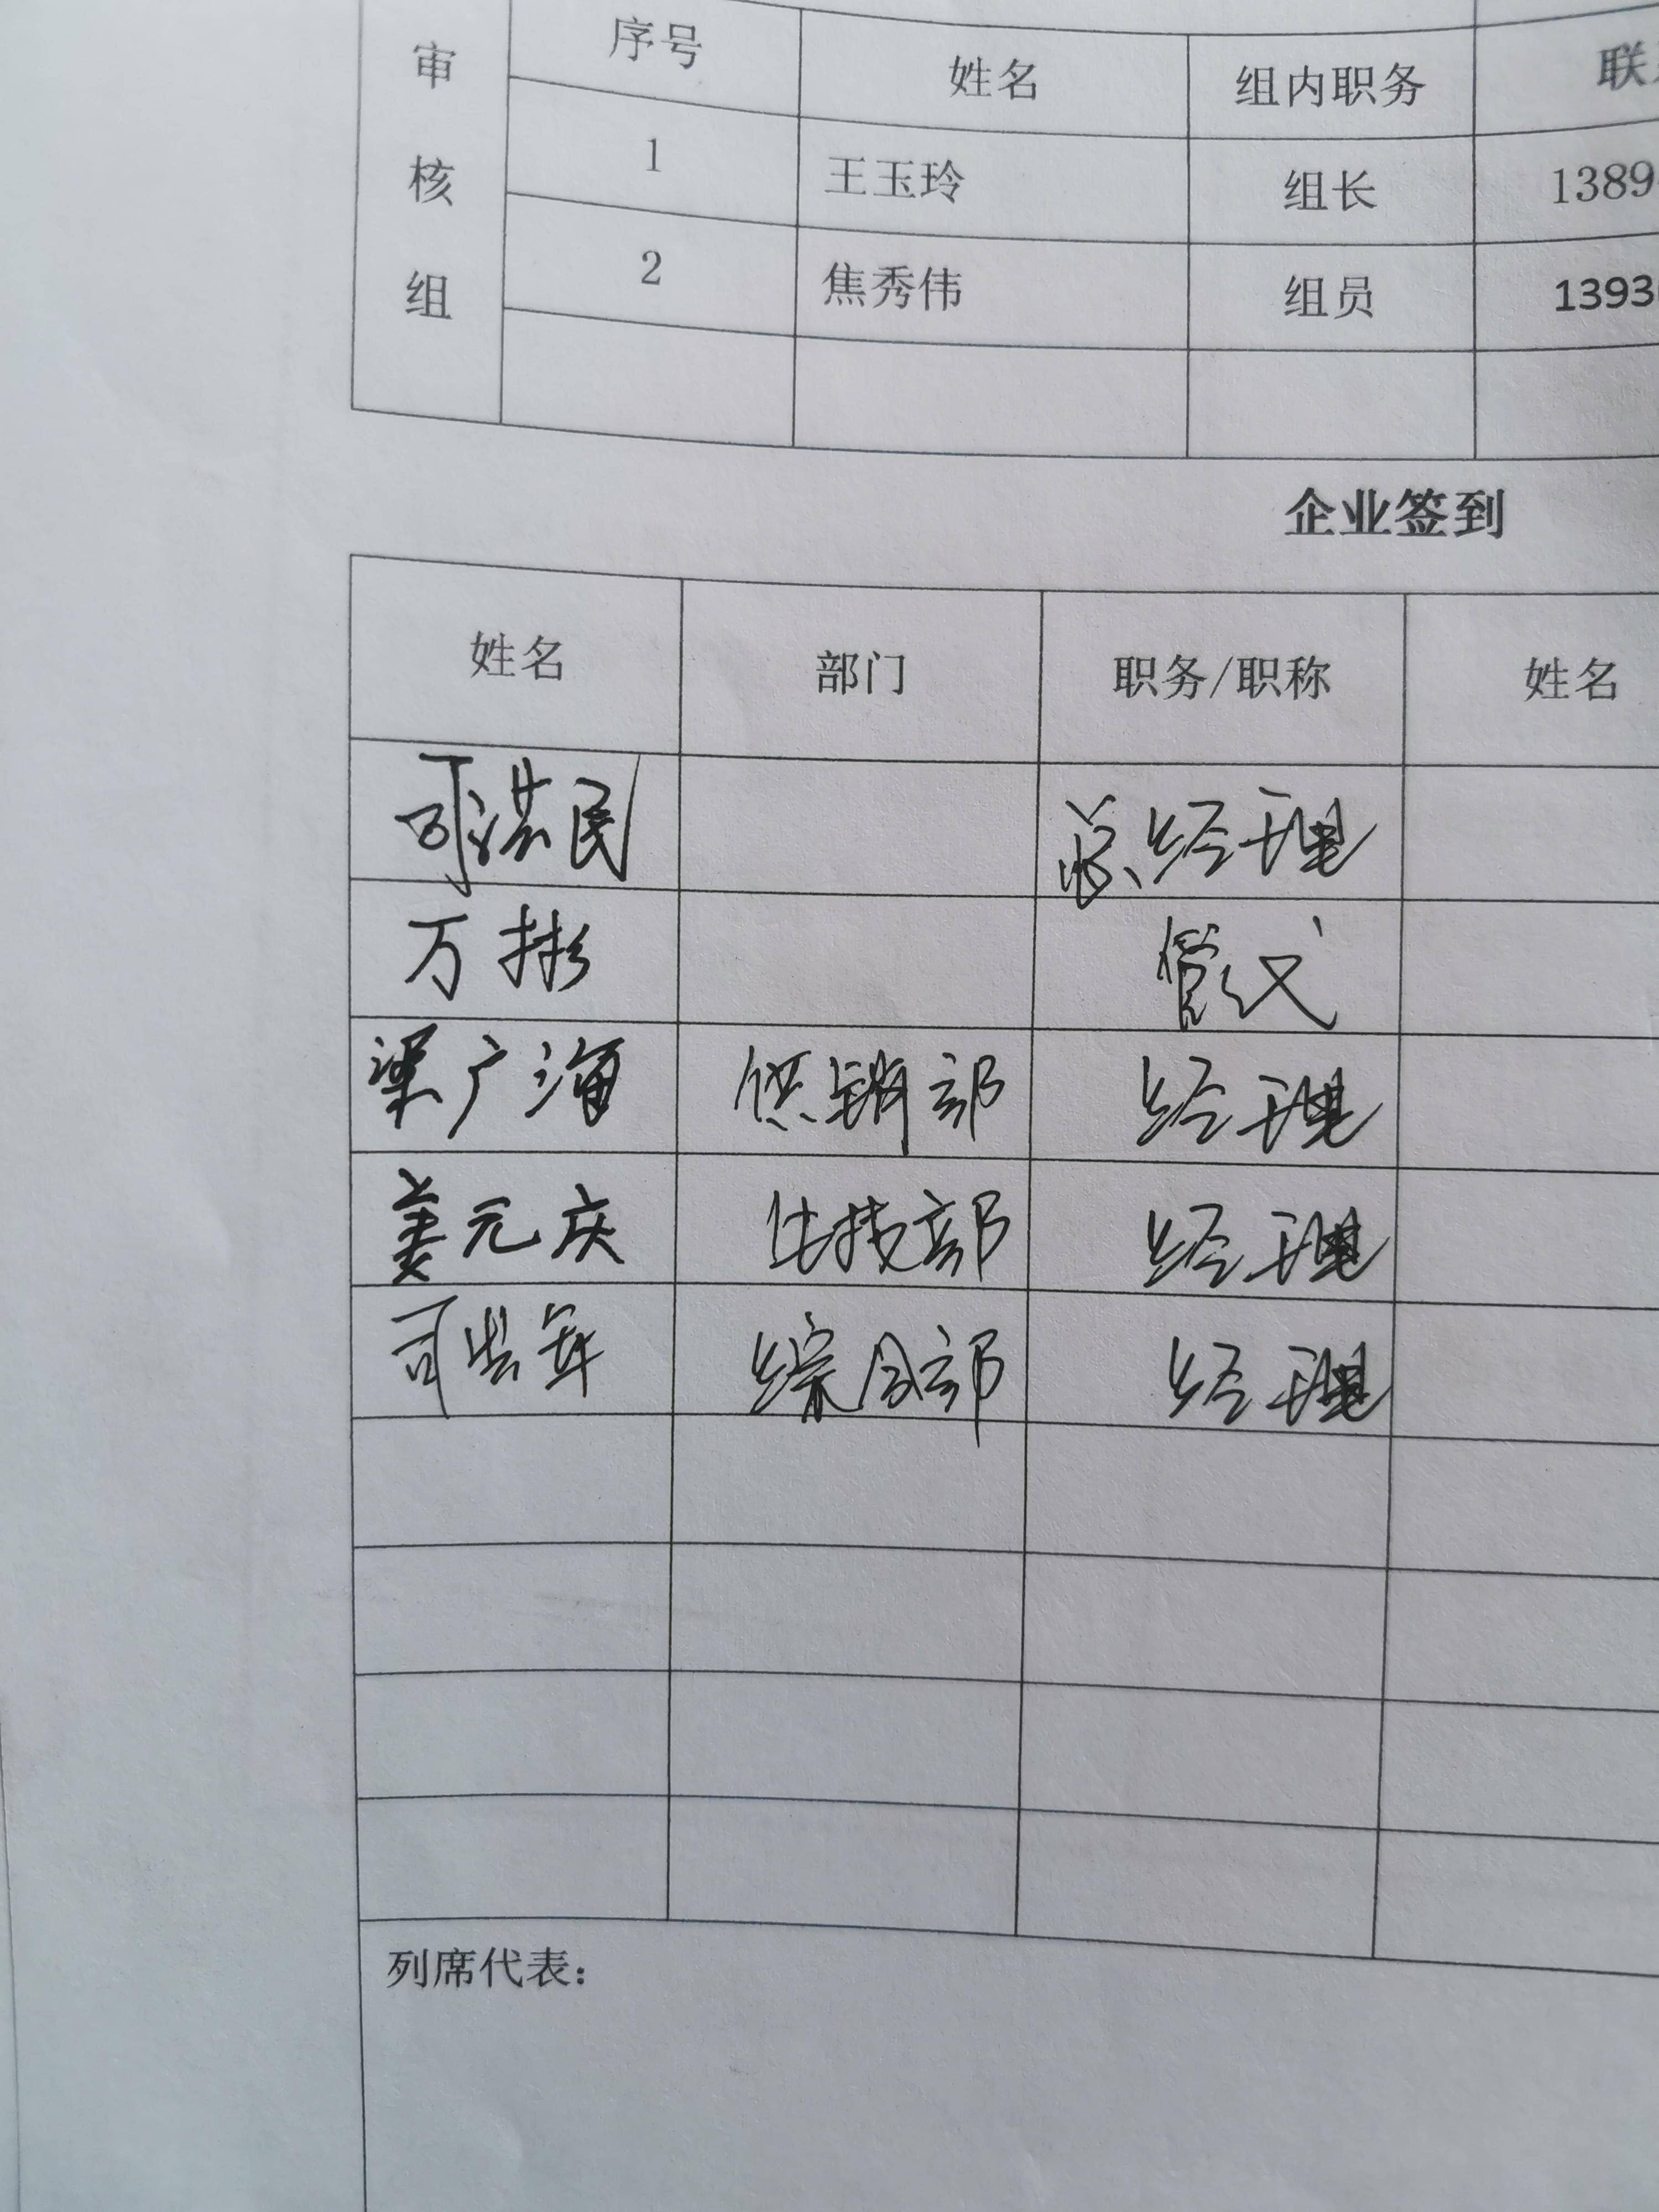 审核组 序号 姓名 组内职务
1 王玉玲 组长 1389
2 焦秀伟 组员 1393
企业签到
姓名 部门 职务/职称 姓名
洪民 总经理
万彬 管代
梁广海 供销部 经理
姜元庆 生技部 经理
司 年 综合部 经理
列席代表：